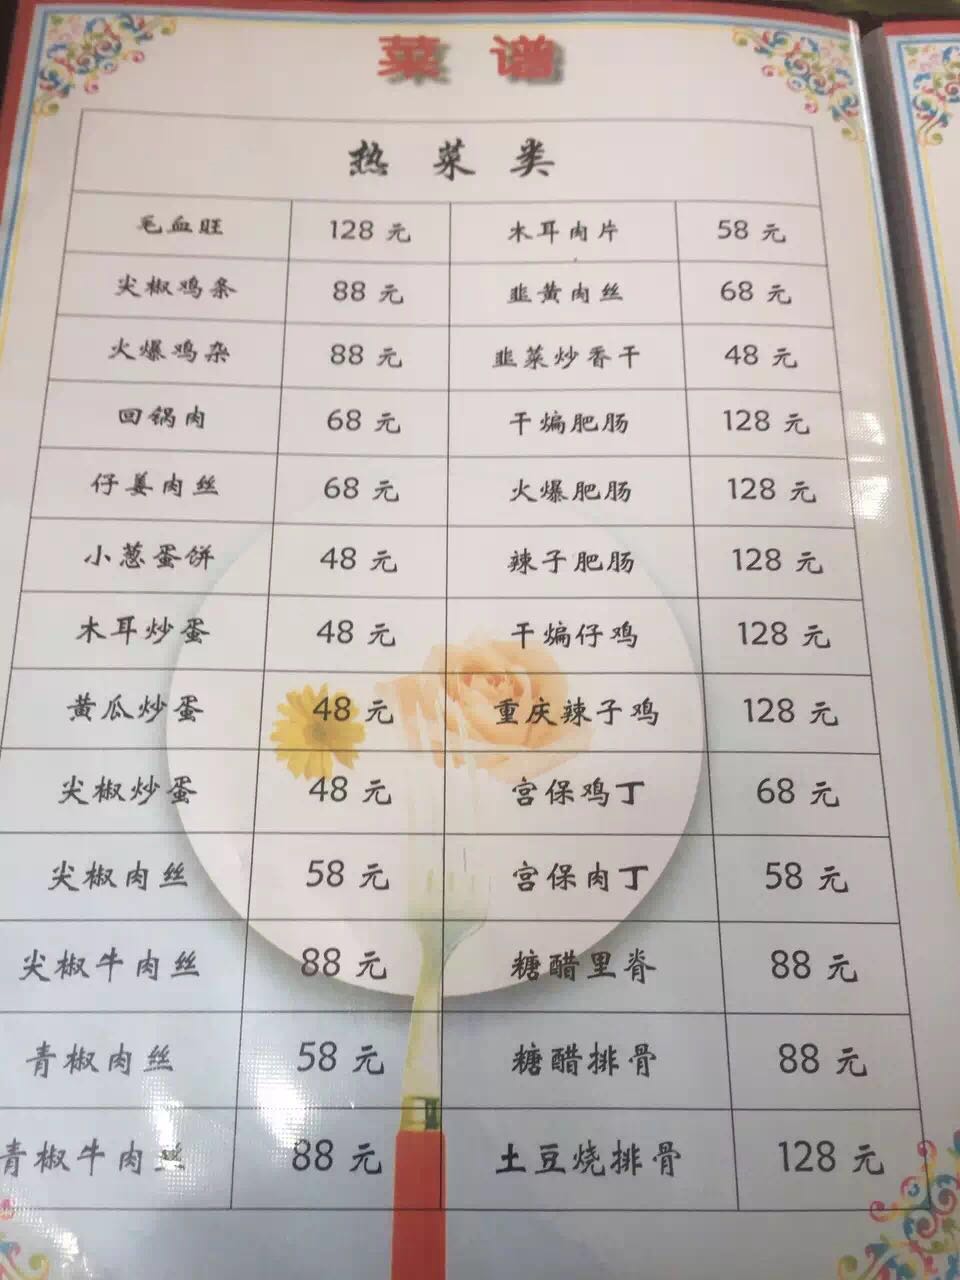 菜 谱
热 菜 类
毛血旺 128 元 木耳肉片 58 元
尖椒鸡条 88 元 韭黄肉丝 68 元
火爆鸡杂 88 元 韭菜炒香干 48 元
回锅肉 68 元 干煸肥肠 128 元
仔姜肉丝 68 元 火爆肥肠 128 元
小葱蛋饼 48 元 辣子肥肠 128 元
木耳炒蛋 48 元 干煸仔鸡 128 元
黄瓜炒蛋 48 元 重庆辣子鸡 128 元
尖椒炒蛋 48 元 宫保鸡丁 68 元
尖椒肉丝 58 元 宫保肉丁 58 元
尖椒牛肉丝 88 元 糖醋里脊 88 元
青椒肉丝 58 元 糖醋排骨 88 元
青椒牛肉丝 88 元 土豆烧排骨 128 元